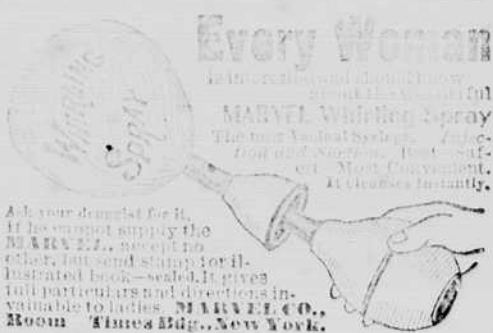 Every Woman
is interested and should know
about the wonderful
MARVEL Whirling Spray
The new Vaginal Syringe. Injec-
tion and Suction. Best—Saf-
est—Most Convenient.
It cleanses Instantly.
WHIRLING
SPRAY
Ask your druggist for it.
If he cannot supply the
MARVEL, accept no
other, but send stamp for il-
lustrated book—sealed. It gives
full particulars and directions in-
valuable to ladies. MARVEL CO.,
Room Times Bdg., New York.